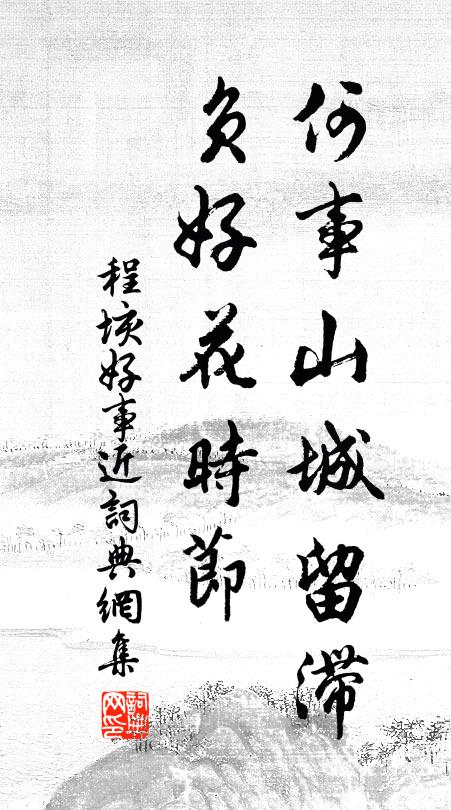 何事山城留滯
負好花時節
程垓好事近詞典網集